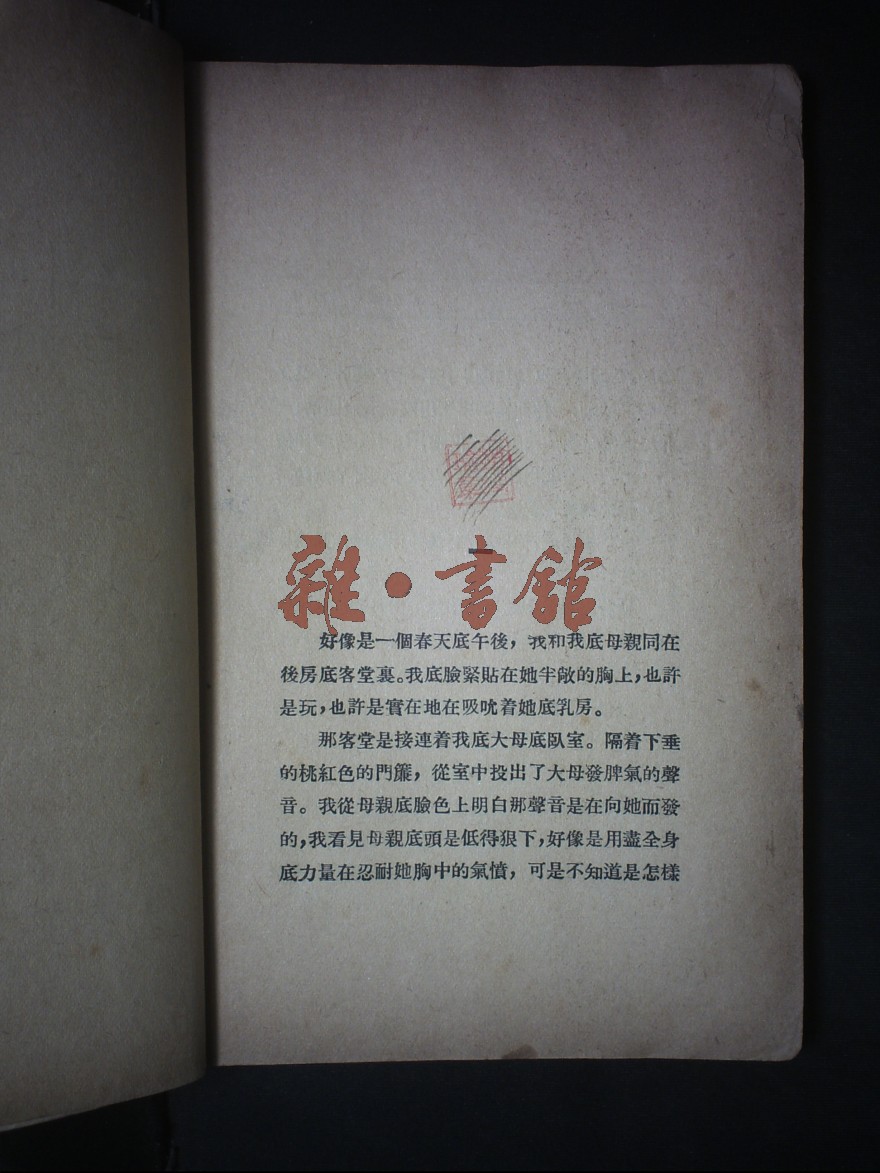 雜•書館
好像是一個春天底午後，我和我底母親同在
後房底客堂裏。我底臉緊貼在她半敞的胸上，也許
是玩，也許是實在地在吸吮着她底乳房。
那客堂是接連着我底大母底臥室。隔着下垂
的桃紅色的門簾，從室中投出了大母發脾氣的聲
音。我從母親底臉色上明白那聲音是在向她而發
的，我看見母親底頭是低得狠下，好像是用盡全身
底力量在忍耐她胸中的氣憤，可是不知道是怎樣